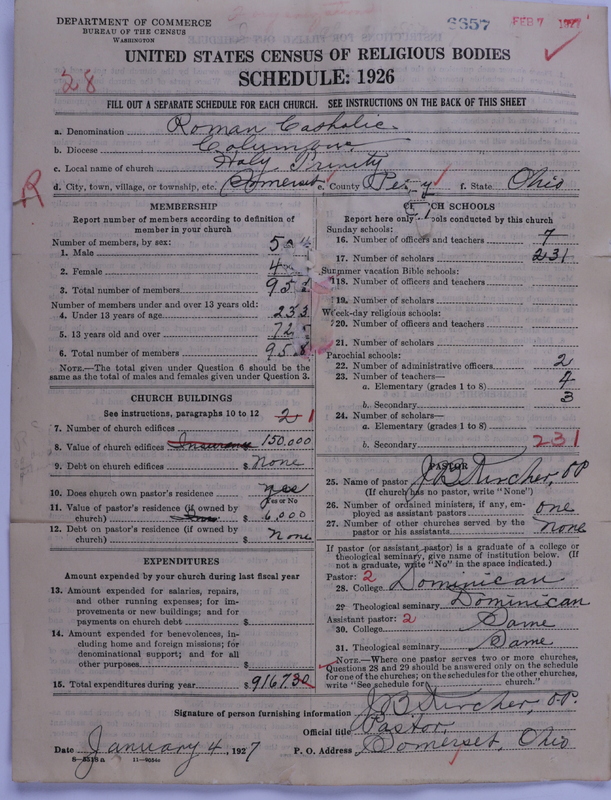 DEPARTMENT OF COMMERCE
BUREAU OF THE CENSUS
WASHINGTON
6657
FEB 7 1927
UNITED STATES CENSUS OF RELIGIOUS BODIES
SCHEDULE: 1926
28
FILL OUT A SEPARATE SCHEDULE FOR EACH CHURCH. SEE INSTRUCTIONS ON THE BACK OF THIS SHEET
a. Denomination Roman Catholic
b. Diocese Columbus
c. Local name of church Holy Trinity
R
d. City, town, village, or township, etc. Somerset e. County Perry f. State Ohio
MEMBERSHIP
Report number of members according to definition of
member in your church
Number of members, by sex:
1. Male
2. Female
3. Total number of members 958
Number of members under and over 13 years old:
4. Under 13 years of age 233
5. 13 years old and over
6. Total number of members 958
NOTE.—The total given under Question 6 should be the
same as the total of males and females given under Question 3.
CHURCH BUILDINGS
See instructions, paragraphs 10 to 12
7. Number of church edifices 2 1
8. Value of church edifices Insurance 150,000
9. Debt on church edifices $ None
10. Does church own pastor's residence yes
Yes or No
11. Value of pastor's residence (if owned by
church) Ins $ 6,000
12. Debt on pastor's residence (if owned by
church) $ None
EXPENDITURES
Amount expended by your church during last fiscal year
13. Amount expended for salaries, repairs,
and other running expenses; for im-
provements or new buildings; and for
payments on church debt $
14. Amount expended for benevolences, in-
cluding home and foreign missions; for
denominational support; and for all
other purposes $
15. Total expenditures during year $ 9167.30
CHURCH SCHOOLS
Report here only schools conducted by this church
Sunday schools:
16. Number of officers and teachers 7
17. Number of scholars 231
Summer vacation Bible schools:
18. Number of officers and teachers
19. Number of scholars
Week-day religious schools:
20. Number of officers and teachers
21. Number of scholars
Parochial schools:
22. Number of administrative officers 2
23. Number of teachers—
a. Elementary (grades 1 to 8) 4
b. Secondary 3
24. Number of scholars—
a. Elementary (grades 1 to 8)
b. Secondary 231
PASTOR
25. Name of pastor J B Kircher, OP
(If church has no pastor, write "None")
26. Number of ordained ministers, if any, em-
ployed as assistant pastors one
27. Number of other churches served by the
pastor or his assistants None
If pastor (or assistant pastor) is a graduate of a college or
theological seminary, give name of institution below. (If
not a graduate, write "No" in the space indicated.)
Pastor: 2
28. College Dominican
29. Theological seminary Dominican
Assistant pastor: 2
30. College Same
31. Theological seminary Same
NOTE.—Where one pastor serves two or more churches,
Questions 28 and 29 should be answered only on the schedule
for one of the churches; on the schedules for the other churches,
write "See schedule for church."
Signature of person furnishing information J B Kircher, O.P.
Official title Pastor,
Date January 4, 1927 P. O. Address Somerset, Ohio
8—5518 a 11—9054a